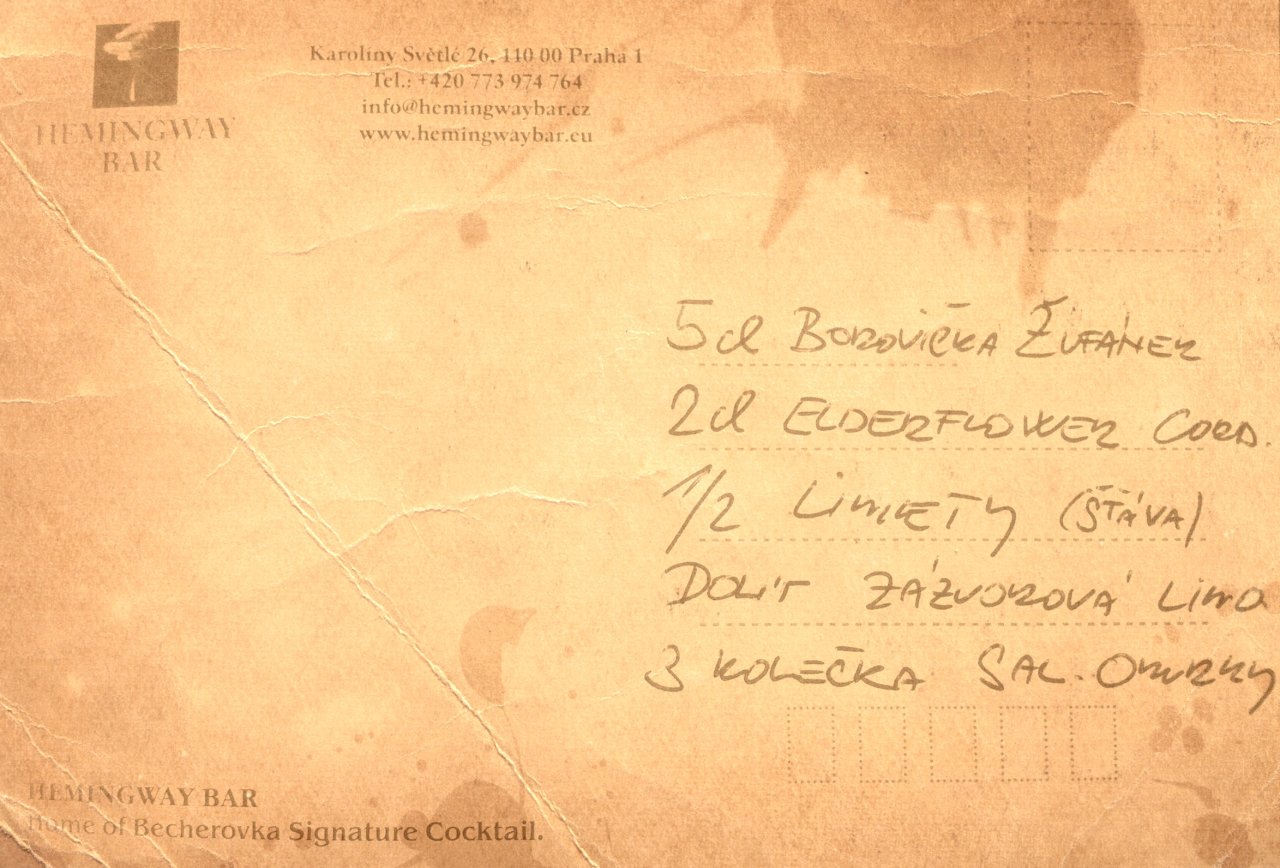 HEMINGWAY
BAR
Karoliny Světlé 26, 110 00 Praha 1
Tel.: +420 773 974 764
info@hemingwaybar.cz
www.hemingwaybar.eu
5cl BOROVIČKA ŽUFÁNEK
2cl ELDERFLOWER CORD.
1/2 LIMETY (ŠŤÁVA)
DOLÍT ZÁZVOROVÁ LIMO
3 KOLEČKA SAL. OKURKY
HEMINGWAY BAR
Home of Becherovka Signature Cocktail.